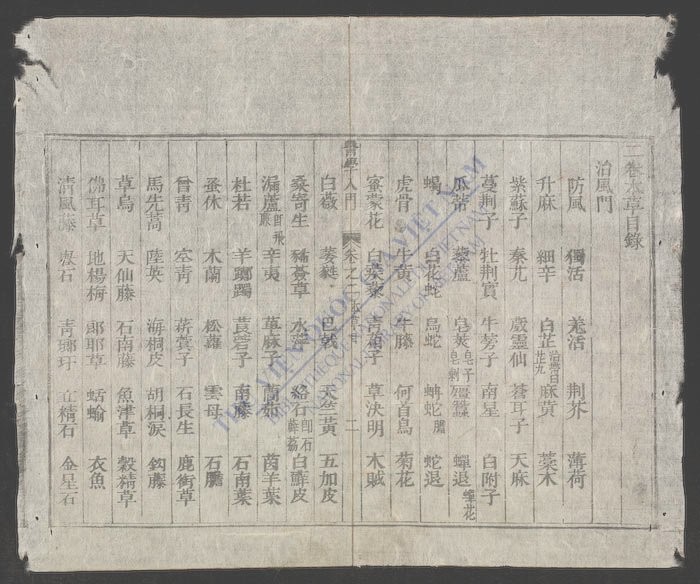 二卷本草目錄
治風門
防風 獨活 羌活 荆芥 薄荷
升麻 細辛 白芷 麻黄 藁本
紫蘇子 秦艽 威靈仙 蒼耳子 天麻
蔓荆子 牡荆實 牛蒡子 南星 白附子
瓜蒂 藜蘆 皂莢 皂子 皂刺 殭蠶 蟬退 蟬花
蝎 白花蛇 烏蛇 蚺蛇 膽 蛇退
虎骨 牛黄 牛膝 何首烏 菊花
蜜蒙花 白蒺藜 青葙子 草決明 木賊
醫學入門 卷之二 二
白薇 萎蕤 巴戟 天竺黄 五加皮
桑寄生 豨薟草 水萍 絡石 即石薜荔 白鮮皮
漏蘆 即飛廉 辛夷 萆麻子 䕡茹 茵芋葉
杜若 羊躑躅 莨菪子 南藤 石南葉
蚤休 木蘭 松蘿 雲母 石膽
曾青 空青 石長生 鹿銜草
馬先蒿 陸英 海桐皮 胡桐淚 鈎藤
草烏 天仙藤 石南藤 魚津草 穀精草
佛耳草 地楊梅 郎耶草 蛞蝓 衣魚
清風藤 青琅玕 玄精石 金星石
THƯ VIỆN QUỐC GIA VIỆT NAM
BIBLIOTHEQUE NATIONALE DU VIETNAM
NATIONAL LIBRARY OF VIETNAM